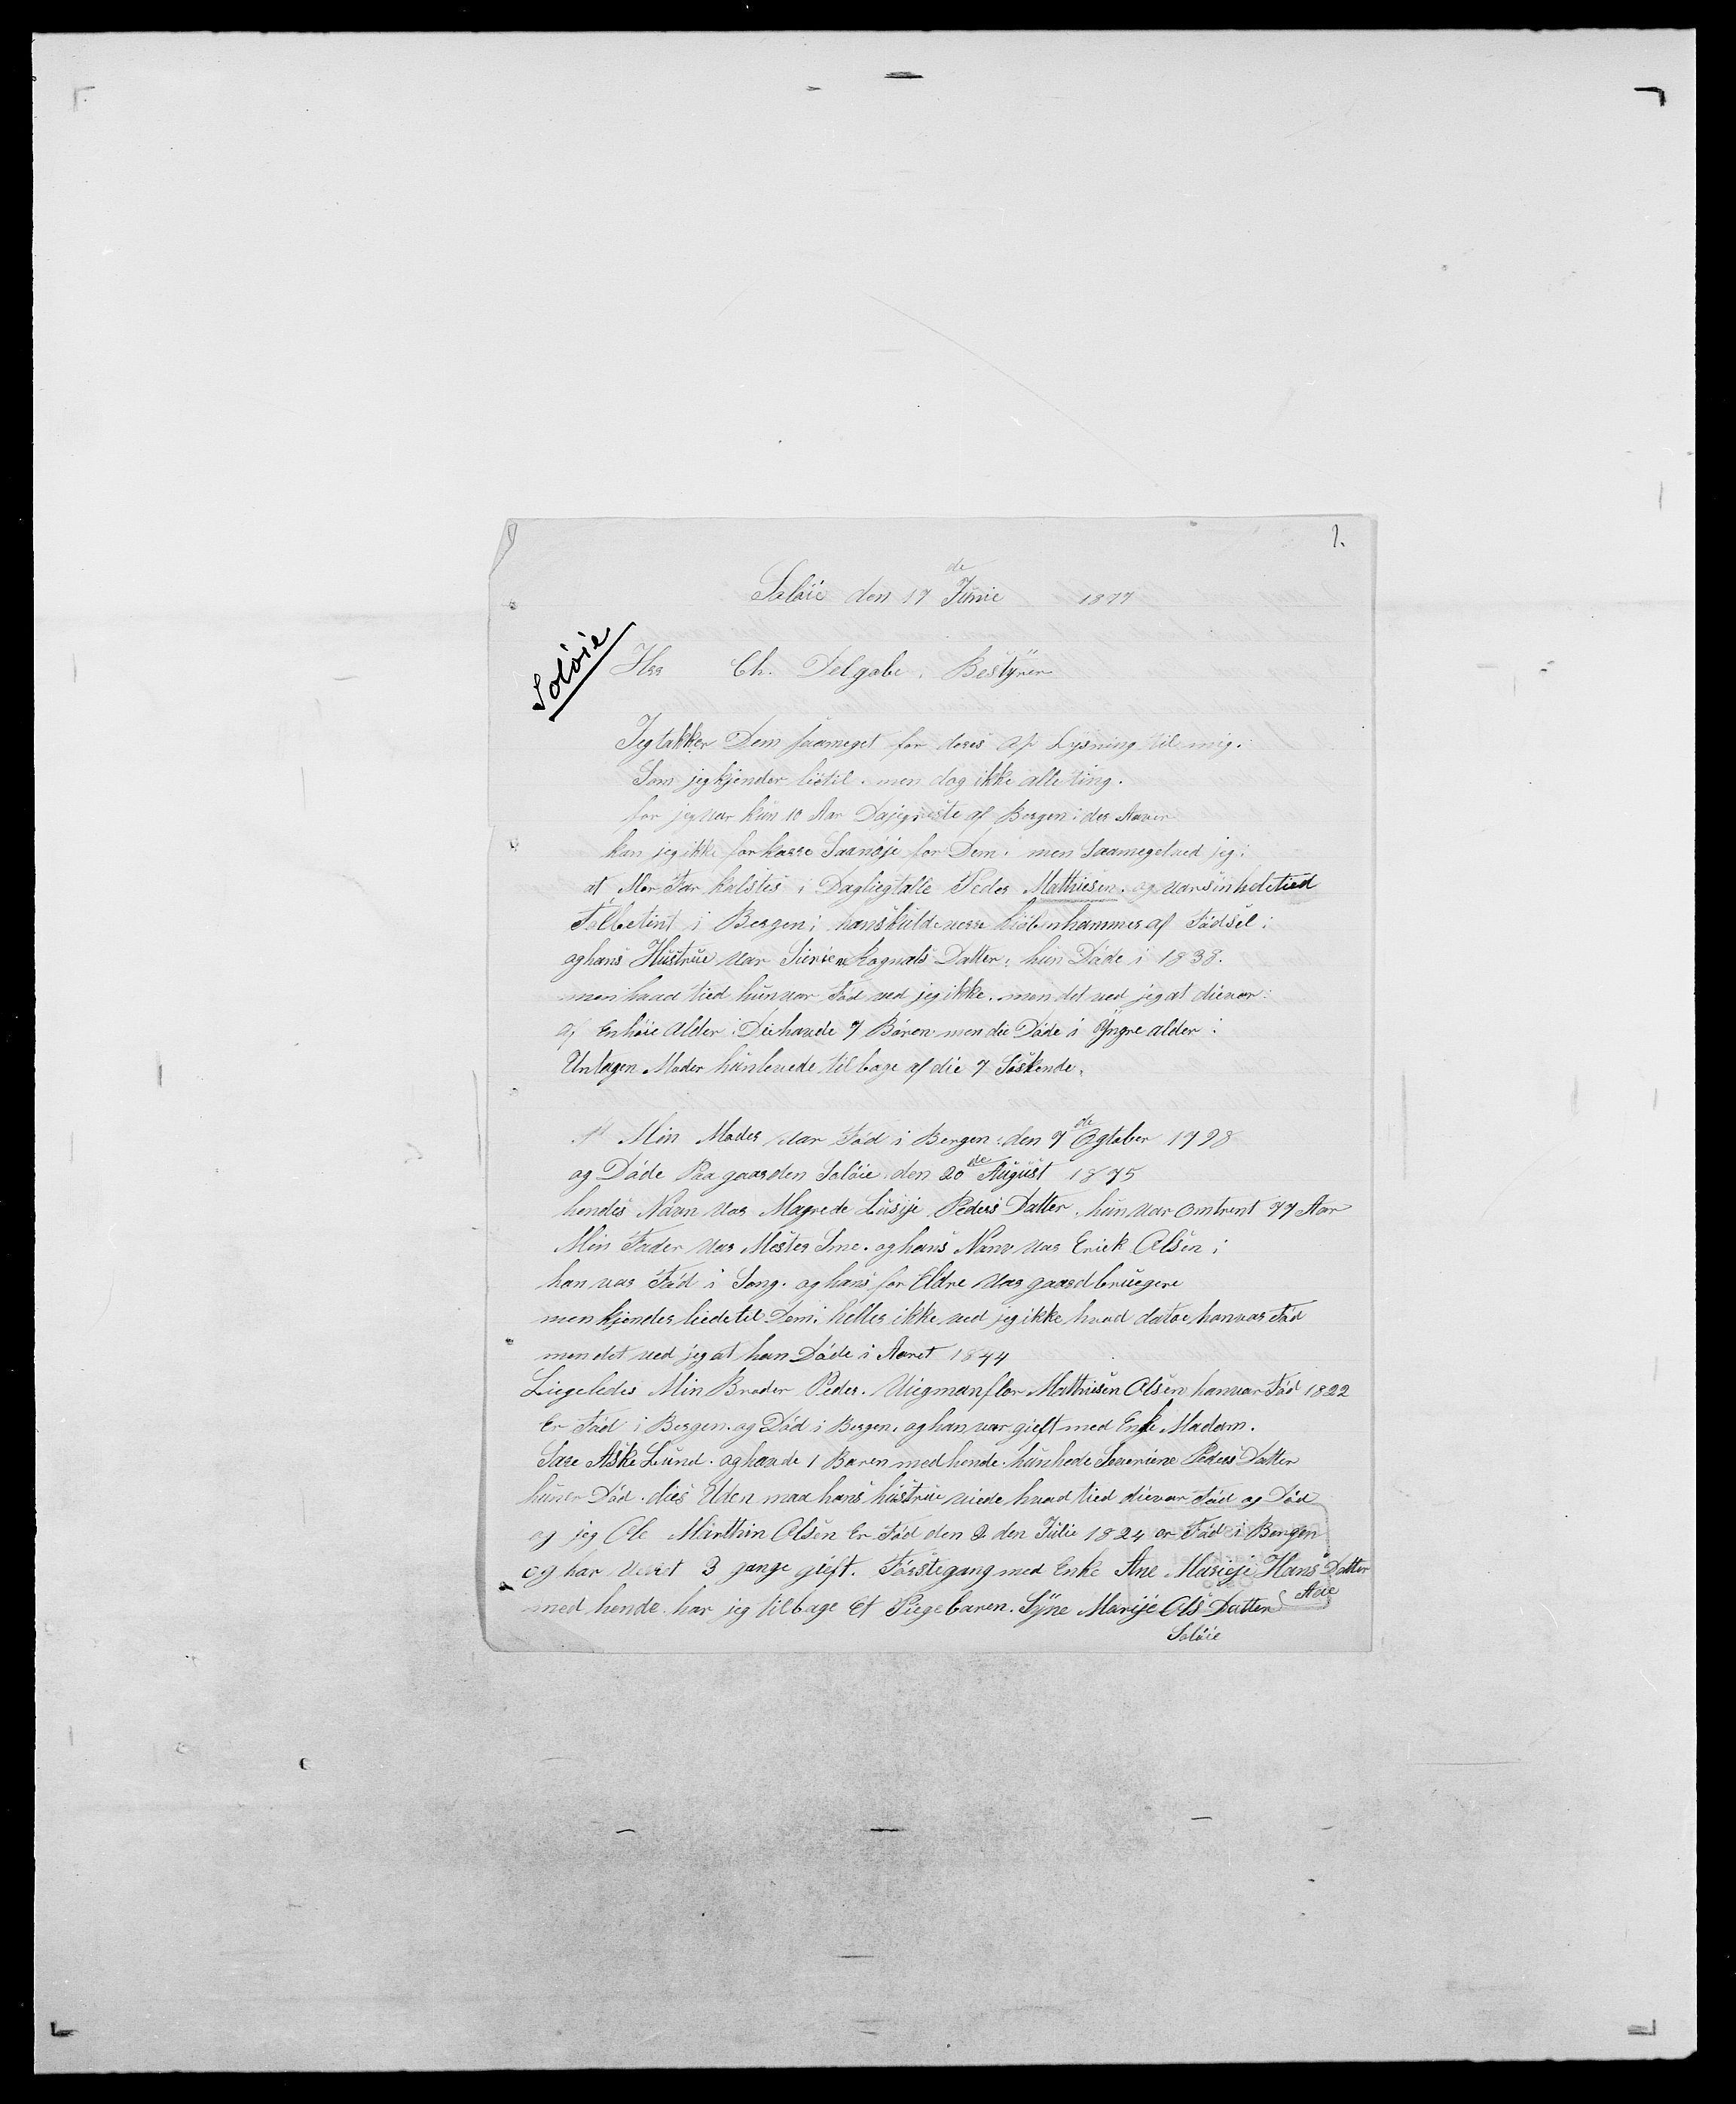 1.
Soløie den 17 de Junie 1877
Soløie
Her Ch. Delgobe. Bestÿrer
Jeg takker Dem saameget for deres op Lysning til mig.
Som jeg kjender lietil. men dog ikke alle ting.
for jeg var kun 10 Aar Dajegreiste af Bergen: der Aarer
kan jeg ikke forkarre Saanøje for Dem. men Saameget ved jeg:
at Mor Far kaldtes i Dagliegtalle Peder Mathiesen. og var sin heletied
Tolbetint i Bergen; hanskulde vere kiøbenhavnner af Fødsel:
og hans Hustrue var Sierien Rognals Datter; hun Døde i 1838.
men hvad tied hun var Fød ved jeg ikke. men det ved jeg at die var:
af En høie Alder: Die havde 7 Børen men die Døde i Yngre alder:
Untagen Moder hun levede til bage af die 7 Søskende.
At Min Moder var Fød i Bergen: den 7 de Ogtober 1798
og Døde Paa gaarden Soløie, den 20 de August 1875
hendes Navn var Magrede Lusije Peders Datter. hun var omtrent 77 Aar
Min Fader var Mester Sme. og hans Navn var Erick Olsen;
han var Fød i Song. og hans for Eldre var gaardbruegere
men kjender liedetil Dem; heller ikke ved jeg ikke hvad datoe han var Fød
men det ved jeg at han Døde i Aaret 1844
Liegeledes Min Broder Peder. Viegmanflor Mathiesen Olsen han var Fød 1822
Er Fød i Bergen. og Død i Bergen. og han var gieft med Enke Madam.
Sare Aske Lund. og havde 1 Baren med hende. hun hede Severiene Peders Datter
hun er Død. dies Uden maa hans hustrue viede hvad tied die var Fød og Død
og jeg Ole Marthin Olsen Er Fød den 2 den Julie 1824 er Fød i Bergen
og har veret 3 gange gieft. Førstegang med Enke Ane Marieje Hans Datter
med hende har jeg tilbage Et Piegebaren. Syne Marije Ols Datter
Soløie